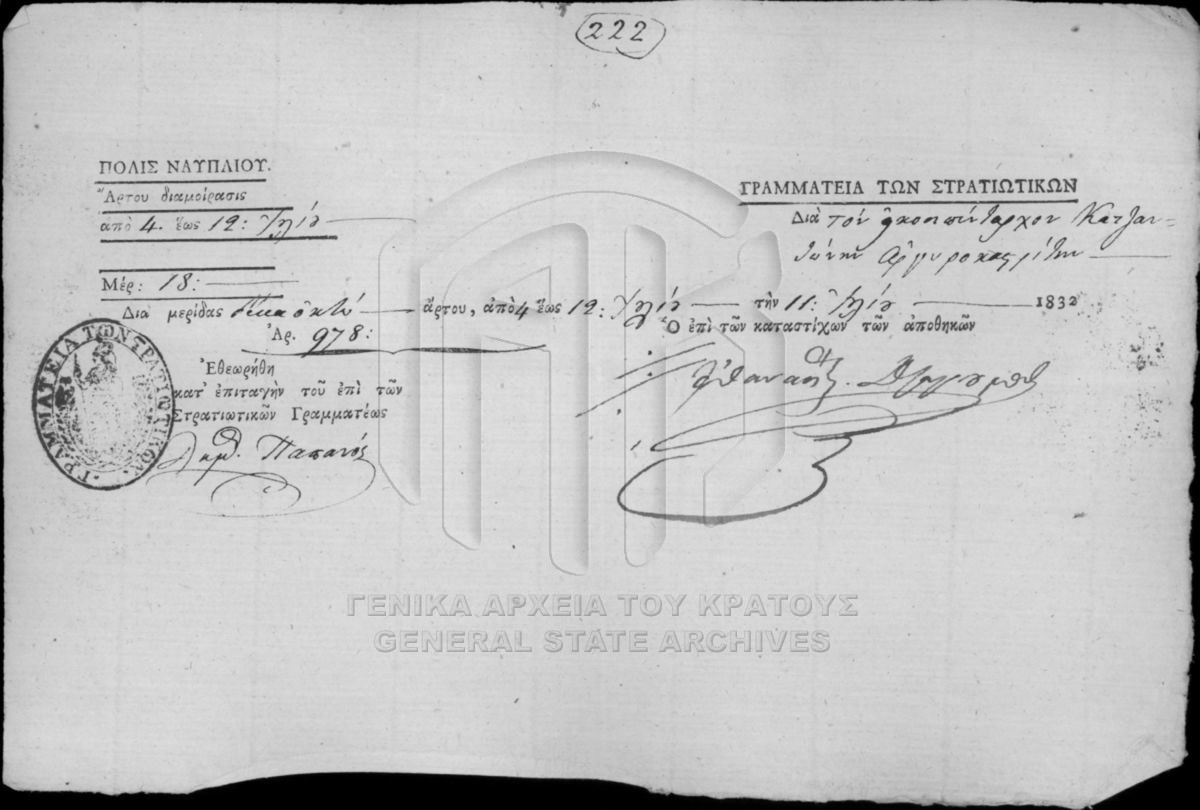 222
ΠΟΛΙΣ ΝΑΥΠΛΙΟΥ.
Ἄρτου διαμοίρασις
ἀπὸ 4. ἕως 12: Ἰουλίου
Μέρ: 18:
ΓΡΑΜΜΑΤΕΙΑ ΤΩΝ ΣΤΡΑΤΙΩΤΙΚΩΝ
Διὰ τὸν εἰκοσιπένταρχον Κατζαν-
τώνην Ἀργυροκαστρίτην
Διὰ μερίδας δέκα ὀκτὼ ἄρτου, ἀπὸ 4 ἕως 12: Ἰουλίου τὴν 11: Ἰουλίου 1832
Ἀρ. 978:
Ὁ ἐπὶ τῶν καταστίχων τῶν ἀποθηκῶν
Ἐθεωρήθη
κατ' ἐπιταγὴν τοῦ ἐπὶ τῶν
Στρατιωτικῶν Γραμματέως
ΓΡΑΜΜΑΤΕΙΑ ΤΩΝ ΣΤΡΑΤΙΩΤΙΚΩΝ
ΓΕΝΙΚΑ ΑΡΧΕΙΑ ΤΟΥ ΚΡΑΤΟΥΣ
GENERAL STATE ARCHIVES